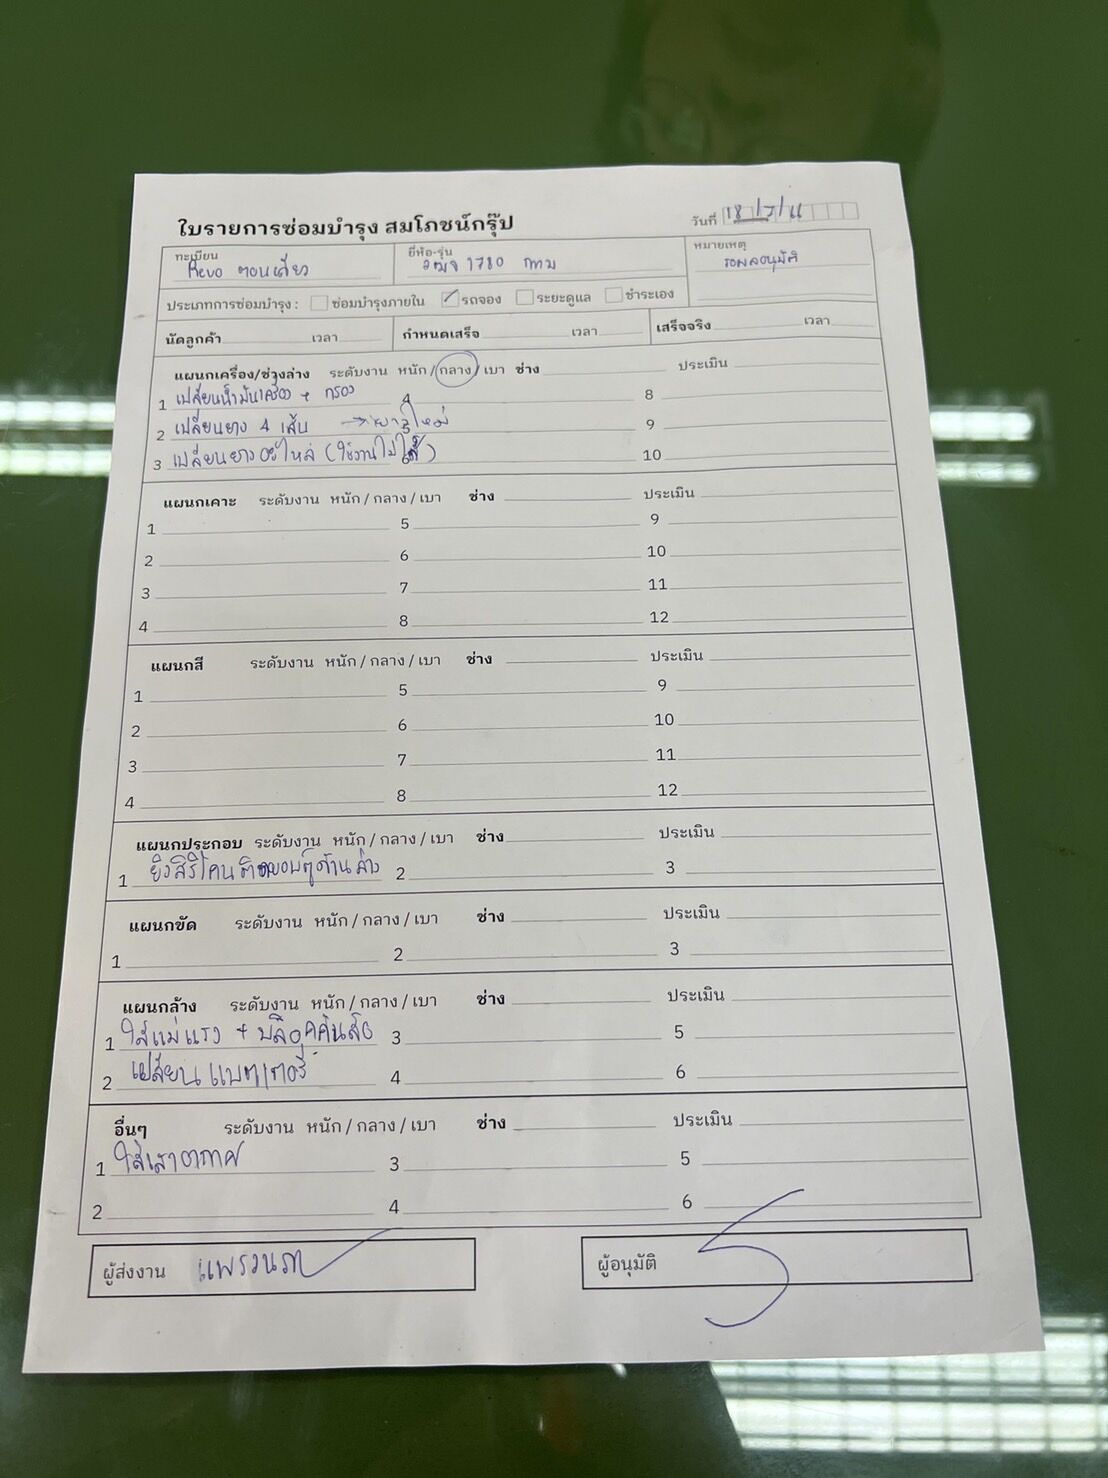 ใบรายการซ่อมบำรุง สมโภชน์กรุ๊ป
วันที่ 18/7/
ทะเบียน Revo ตอนเดียว
ยี่ห้อ-รุ่น 1780 กทม
หมายเหตุ รอผลอนุมัติ
ประเภทการซ่อมบำรุง : ซ่อมบำรุงภายใน ✓ รถจอง ระยะดูแล ชำระเอง
นัดลูกค้า เวลา กำหนดเสร็จ เวลา เสร็จจริง เวลา
แผนกเครื่อง/ช่วงล่าง ระดับงาน หนัก / กลาง / เบา ช่าง ประเมิน
1 เปลี่ยนน้ำมันเครื่อง + กรอง 4 8
2 เปลี่ยนยาง 4 เส้น → ยางใหม่ 5 9
3 เปลี่ยนยางอะไหล่ (ใช้งานไม่ได้) 6 10
แผนกเคาะ ระดับงาน หนัก / กลาง / เบา ช่าง ประเมิน
1 5 9
2 6 10
3 7 11
4 8 12
แผนกสี ระดับงาน หนัก / กลาง / เบา ช่าง ประเมิน
1 5 9
2 6 10
3 7 11
4 8 12
แผนกประกอบ ระดับงาน หนัก / กลาง / เบา ช่าง ประเมิน
1 ยิงสิริโคน ด้านล่าง 2 3
แผนกขัด ระดับงาน หนัก / กลาง / เบา ช่าง ประเมิน
1 2 3
แผนกล้าง ระดับงาน หนัก / กลาง / เบา ช่าง ประเมิน
1 ใส่แม่แรง + บล็อค 3 5
2 เปลี่ยนแบตเตอรี่ 4 6
อื่นๆ ระดับงาน หนัก / กลาง / เบา ช่าง ประเมิน
1 ใส่เสาอากาศ 3 5
2 4 6
ผู้ส่งงาน แพรวนภา
ผู้อนุมัติ